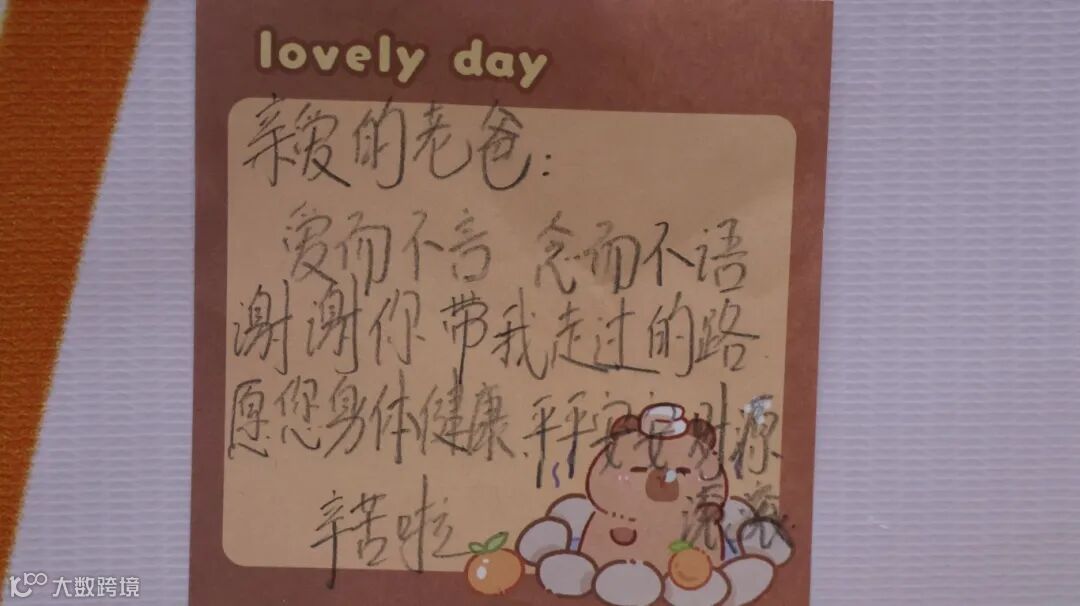 lovely day
亲爱的老爸：
爱而不言 念而不语
谢谢你带我走过的路
愿您身体健康.平平安安财源
滚滚
辛苦啦
大数跨境